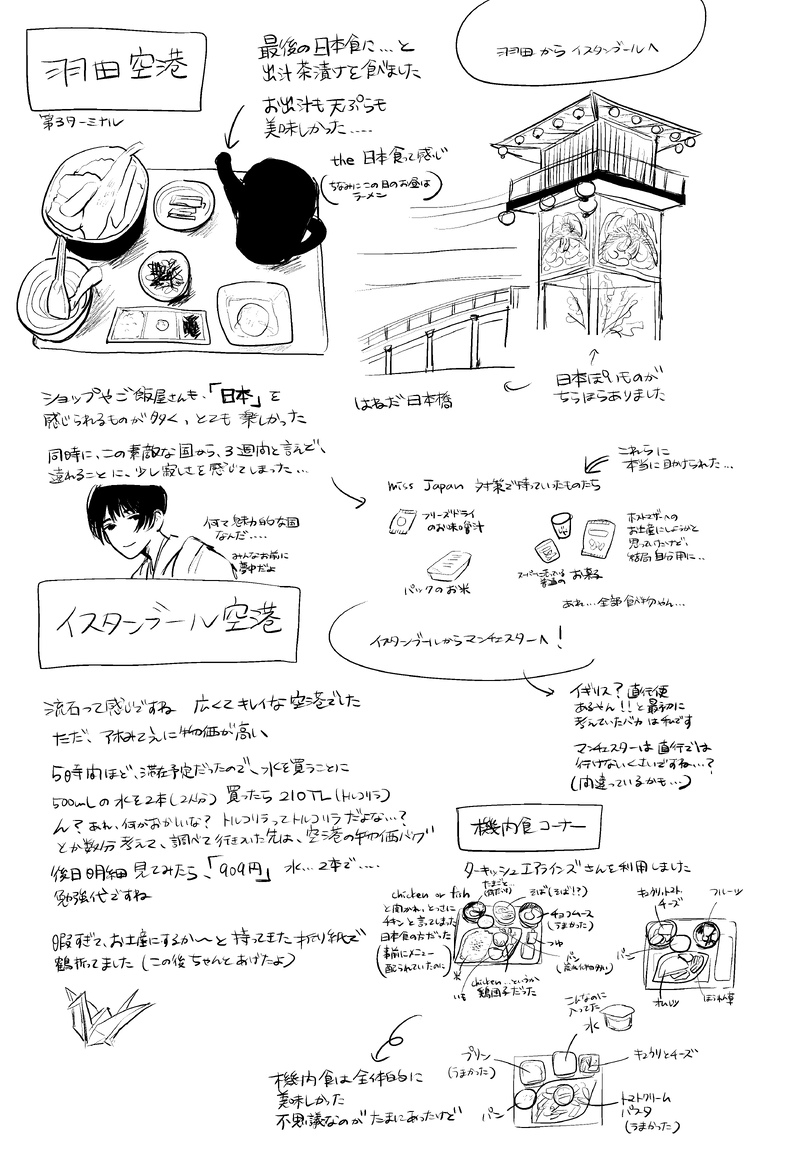 羽田空港
第3ターミナル
最後の日本食に…と
出汁茶漬けを食べました
お出汁も天ぷらも
美味しかった….
the 日本食って感じ
(ちなみにこの日のお昼は
ラーメン)
羽田からイスタンブールへ
はねだ日本橋
日本ぽいものが
ちらほらありました
ショップやご飯屋さんも、「日本」を
感じられるものが多く、とても楽しかった
同時に、この素敵な国から、3週間と言えど、
離れることに、少し寂しさを感じてしまった…
何て魅力的な国
なんだ….
みんなお前に
夢中だよ
これらに
本当に助けられた…
miss Japan 対策で持っていたものたち
フリーズドライ
のお味噌汁
パックのお米
スーパーに売っている
普通の お菓子
ホストマザーへの
お土産にしようかと
思っていたけど、
結局自分用に…
あれ…全部食べ物やん…
イスタンブール空港
イスタンブールからマンチェスターへ!
流石って感じですね 広くてキレイな空港でした
ただ、アホみてぇに物価が高い
5時間ほど、滞在予定だったので、水を買うことに
500mLの水を2本(2人分) 買ったら 210TL(トルコリラ)
ん?あれ、何かおかしいな? トルコリラってトルコリラだよな…?
とか数分考えて、調べて行きついた先は、空港の物価バグ
後日明細見てみたら、「909円」 水…2本で….
勉強代ですね
暇すぎて、お土産にするか〜と持ってきた折り紙で
鶴折ってました (この後ちゃんとあげたよ)
イギリス?直行便
あるやん!!と最初に
考えていたバカは私です
マンチェスターは直行では
行けないくさいですね…?
(間違っているかも…)
機内食コーナー
ターキッシュエアラインズさんを利用しました
chicken or fish
と聞かれ、とっさに
チキンと言ってしまった
日本食の方だった
(事前にメニュー
配られていたのに)
たまごと…
そば(そば!?)
チョコムース
(うまかった)
つゆ
パン
米
いも
chicken…というか
鶏団子だった
キュウリ、トマト
チーズ
フルーツ
パン
オムレツ
ほうれん草
こんなのに
入ってた
水
プリン
(うまかった)
キュウリとチーズ
パン
トマトクリーム
パスタ
(うまかった)
機内食は全体的に
美味しかった
不思議なのがたまにあったけど